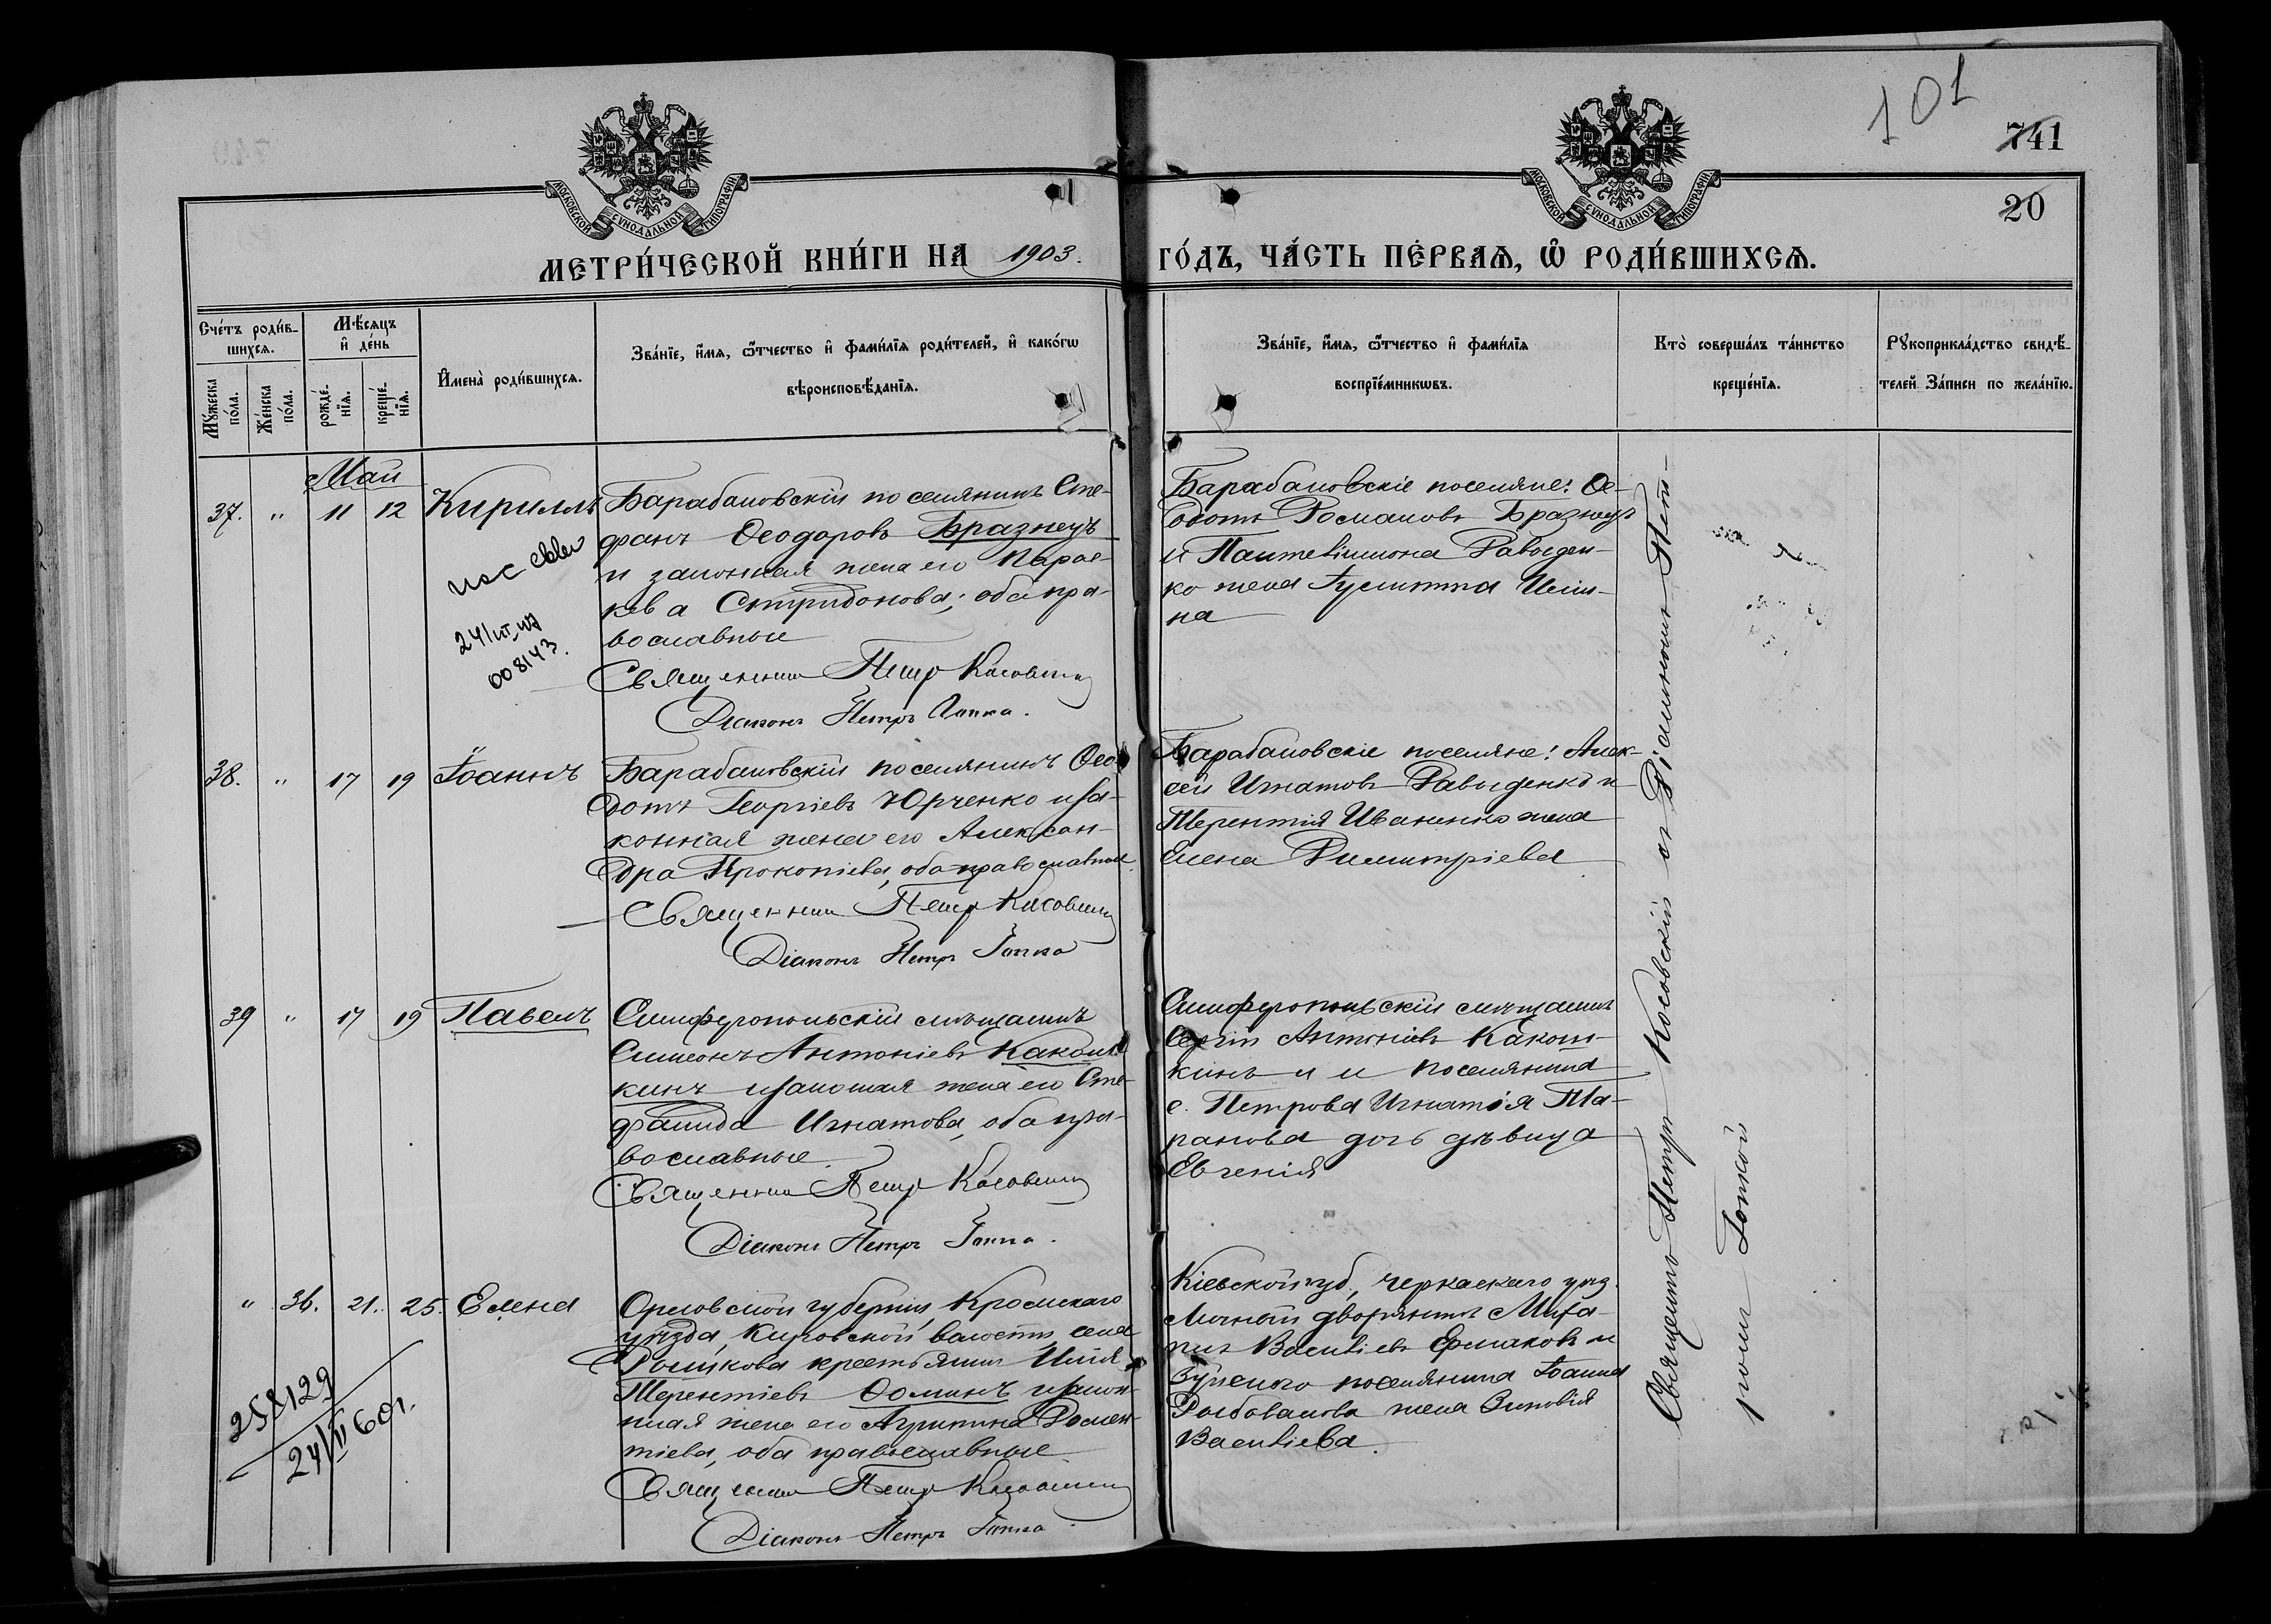 101
741
20
МОСКОВСКОЙ СѴНОДАЛЬНОЙ ТИПОГРАФІИ
МОСКОВСКОЙ СѴНОДАЛЬНОЙ ТИПОГРАФІИ
МЕТРИ́ЧЕСКОЙ КНИ́ГИ НА 1903.
ГО́ДЪ, ЧА́СТЬ ПЕ́РВАѦ, Ѿ РОДИ́ВШИХСѦ.
Сче́тъ роди́в-
шихсѧ.
Мꙋжеска по́ла.
Же́нска по́ла.
Мѣ́сѧцъ и҆ де́нь
рожде́-нїѧ.
креще́-нїѧ.
И҆мена̀ роди́вшихсѧ.
Зва́нїе, и҆́мѧ, ѻ҆́тчество и҆ фами́лїѧ роди́телей, и҆ како́гѡ
вѣроисповѣ́данїѧ.
Зва́нїе, и҆́мѧ, ѻ҆́тчество и҆ фами́лїѧ
воспрїе́мникѡвъ.
Кто̀ соверша́лъ та́инство
креще́нїѧ.
Рꙋкоприкла́дство свидѣ́-
телей за́писи по жела́нїю.
Май
37. " 11 12 Кириллъ
Барабановскій поселянинъ Сте-
фанъ Ѳеодоровъ Бразнецъ
и законная жена его Парас-
кева Спиридонова; оба пра-
вославные
Священникъ Петръ Косовскій
Діаконъ Петръ Гапка.
Барабановскіе поселяне: Ѳе-
дотъ Романовъ Бразнецъ
и Пантелиимона Давыден-
ко жена Іулитта Ильи-
на
008143.
38. " 17 19 Іоаннъ
Барабановскій поселянинъ Ѳео-
дотъ Георгіевъ Юрченко и за-
конная жена его Алексан-
дра Прокопіева, оба православные
Священникъ Петръ Косовскій
Діаконъ Петръ Гапка
Барабановскіе поселяне: Алек-
сѣй Игнатовъ Давыденко и
Терентія Иваненко жена
Елена Димитріева
39 " 17 19 Павелъ
Симферопольскій мѣщанинъ
Симеонъ Антоніевъ Какош-
кинъ и законная жена его Сте-
фанида Игнатова, оба пра-
вославные.
Священникъ Петръ Косовскій
Діаконъ Петръ Гапка.
Симферопольскій мѣщанинъ
Сергій Антоніевъ Какош-
кинъ и поселянина
с. Петрова Игнатія Та-
ранова дочь дѣвица
Евгенія
" 36. 21. 25. Елена
Орловской губерніи, Кромскаго
уѣзда, волости, села
крестьянинъ Илія
Терентіевъ Ѳоминъ и закон-
ная жена его Агрипина
оба православные
Священникъ Петръ Косовскій
Діаконъ Петръ Гапка.
Кіевской губ, черкаскаго уѣзд.
Личный дворянинъ Миха-
илъ Васильевъ Ермаковъ и
поселянина Іоанна
жена Зиновія
Васильева.
258129
24/II 60г.
Священникъ Петръ Косовскій съ Діакономъ Пет-
ромъ Гапкой